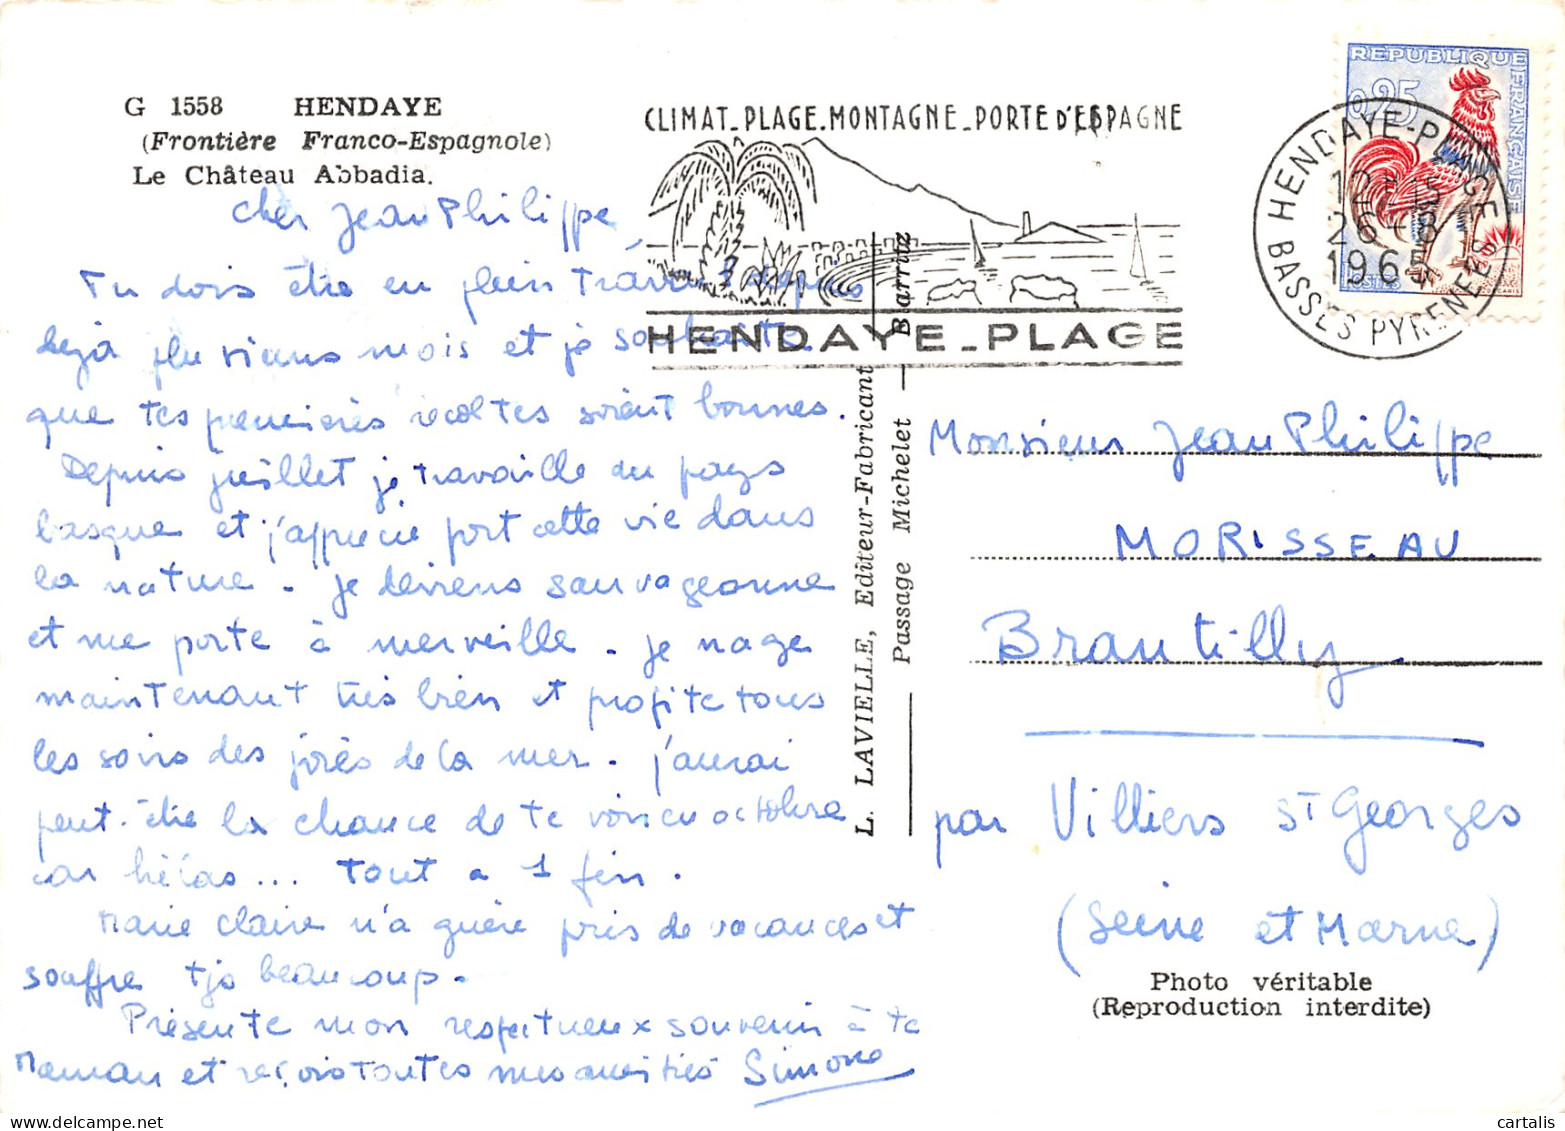 G 1558 HENDAYE
(Frontière Franco-Espagnole)
Le Château Abbadia.
CLIMAT_PLAGE.MONTAGNE_PORTE D'ESPAGNE
HENDAYE_PLAGE
HENDAYE-PLAGE
26-8
1965
BASSES PYRENEES
REPUBLIQUE FRANÇAISE
0,25
POSTES
cher Jean Philippe
Tu dois être en plein travail depuis
déjà plusieurs mois et je souhaite
que tes premières récoltes soient bonnes.
Depuis juillet je travaille au pays
basque et j'apprécie fort cette vie dans
la nature. Je deviens sauvageonne
et me porte à merveille. Je nage
maintenant très bien et profite tous
les soirs des joies de la mer. J'aurai
peut-être la chance de te voir en octobre
car hélas... tout a 1 fin.
Marie Claire n'a guère pris de vacances et
souffre tjs beaucoup.
Présente mon respectueux souvenir à ta
Maman et reçois toutes mes amitiés Simone
L. LAVIELLE, Editeur-Fabricant
Passage Michelet — Biarritz
Monsieur Jean Philippe
MORISSEAU
Brantilly
par Villiers St Georges
(Seine et Marne)
Photo véritable
(Reproduction interdite)
cartalis